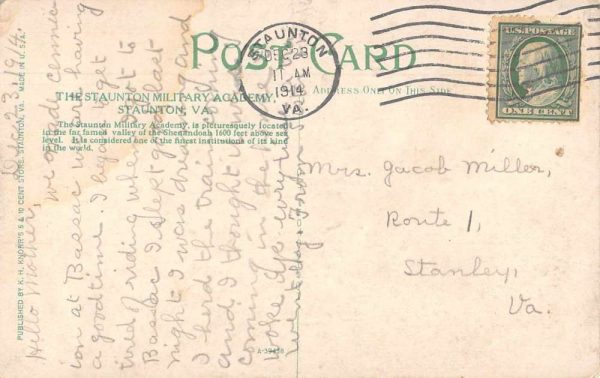 POST CARD
ADDRESS ONLY ON THIS SIDE
THE STAUNTON MILITARY ACADEMY,
STAUNTON, VA.
The Staunton Military Academy, is picturesquely located
in the far famed valley of the Shenandoah 1600 feet above sea
level. It is considered one of the finest institutions of its kind
in the world.
STAUNTON
DEC 23
11 AM
1914
VA.
U.S. POSTAGE
ONE CENT
Mrs. Jacob Miller,
Route 1,
Stanley,
Va.
Dec 23, 1914
Hello Mother,
we made connec
ion at Bassac we are having
a good time. I begin to get
tired of riding when I got to
Bassac I slept good last
night I was dreaming and
I herd the train
and I thought it was
coming in the
woke up every
went by. From
PUBLISHED BY K. H. KNORR'S 5 & 10 CENT STORE, STAUNTON, VA. MADE IN U. S. A.
A-39458